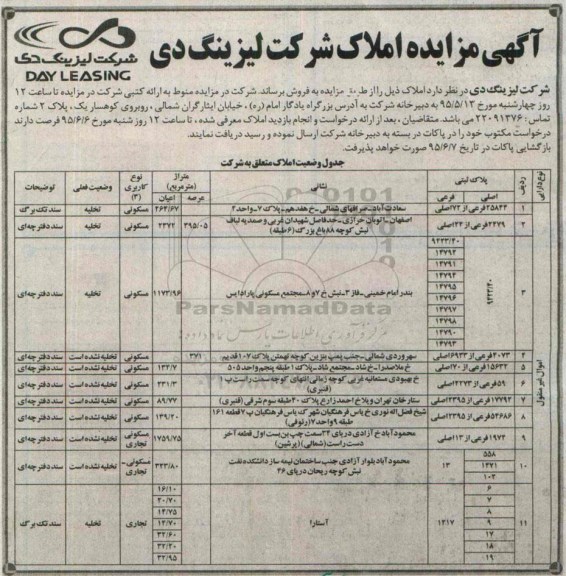 آگهی مزایده املاک شرکت لیزینگ دی
شرکت لیزینگ دی
DAY LEASING
شرکت لیزینگ دی در نظر دارد املاک ذیل را از طریق مزایده به فروش برساند. شرکت در مزایده منوط به ارائه کتبی شرکت در مزایده تا ساعت ۱۲
روز چهارشنبه مورخ ۹۵/۵/۱۳ به دبیرخانه شرکت به آدرس بزرگراه یادگار امام (ره)، خیابان ایثارگران شمالی، روبروی کوهسار یک، پلاک ۲ شماره
تماس: ۲۲۰۹۱۳۷۶ می باشد. متقاضیان، بعد از ارائه درخواست و انجام بازدید املاک معرفی شده، تا ساعت ۱۲ روز شنبه مورخ ۹۵/۶/۶ فرصت دارند
درخواست مکتوب خود را در پاکت در بسته به دبیرخانه شرکت ارسال نموده و رسید دریافت نمایند.
بازگشایی پاکات در تاریخ ۹۵/۶/۷ صورت خواهد پذیرفت.
جدول وضعیت املاک متعلق به شرکت
نوع دارایی ردیف پلاک ثبتی اصلی فرعی نشانی متراژ (مترمربع) عرصه اعیان نوع کاربری (۳) وضعیت فعلی توضیحات
اموال غیر منقول
۱ ۲۵۸۴۴ فرعی از ۷۲ اصلی سعادت آباد - صرافهای شمالی - خ هفدهم - پلاک ۷ - واحد ۲ ۲۶۴/۶۷ مسکونی تخلیه سند تک برگ
۲ ۲۲۷۹ فرعی از ۲۳ اصلی اصفهان - اتوبان خرازی - حدفاصل شهیدان غربی و صمدیه لباف
نبش کوچه ۸۸ باغ بزرگ (۶ طبقه) ۳۹۵/۰۵ ۲۳۷۲ مسکونی تخلیه سند دفترچه ای
۳ ۹۲۳۳/۴۰ بندر امام خمینی - فاز ۳ - نبش خ ۷ و ۸ - مجتمع مسکونی پارادایس ۱۱۷۳/۹۶ مسکونی تخلیه سند دفترچه ای
۹۲۳۳/۴۰
۱۴۷۹۲
۱۴۷۹۱
۱۴۷۹۴
۱۴۷۹۵
۱۴۷۹۶
۱۴۷۹۷
۱۴۷۹۸
۱۴۷۹۰
۱۴۷۹۳
۴ ۲۰۷۳ فرعی از ۶۹۳۳ اصلی سهروردی شمالی - جنب پمپ بنزین کوچه تهمتن پلاک ۱۰۷ قدیم ۳۷۱ مسکونی تخلیه نشده است سند دفترچه ای
۵ ۱۵۶۳۲ فرعی از ۷۰ اصلی خ ملاصدرا - خ شاد - مجتمع شاد - پلاک ۱ طبقه پنجم واحد ۵۰۵ ۱۳۲/۷ مسکونی تخلیه نشده است سند دفترچه ای
۶ ۵۹ فرعی از ۲۲۷۳ اصلی خ بهبودی مستعانیه غربی کوچه زمانی انتهای کوچه سمت راست پ
(قنبری) ۲۳۱/۳ مسکونی تخلیه نشده است سند دفترچه ای
۷ ۱۷۷۹۲ فرعی از ۲۳۹۵ اصلی ستارخان تهران ویلا خ احمد زارع پلاک ۲۰ طبقه سوم شرقی (قنبری) ۸۹/۷۷ مسکونی تخلیه نشده است سند دفترچه ای
۸ ۵۴۶۸۶ فرعی از ۲۳۹۵ اصلی شیخ فضل اله نوری خ یاس فرهنگیان شهرک یاس فرهنگیان پ ۷ قطعه ۱۶۱
طبقه ۹ واحد ۷ (رئوفی) ۱۴۹/۲۰ مسکونی تخلیه نشده است سند دفترچه ای
۹ ۱۹۷۴ فرعی از ۱۳ اصلی محمودآباد خ آزادی دریای ۳۴ سمت چپ بن بست اول قطعه آخر
دست راست (شمالی) (پرشین) ۱۷۵۹/۷۵ مسکونی تجاری تخلیه نشده است سند دفترچه ای
۱۰ ۱۳ محمودآباد بلوار آزادی جنب ساختمان نیمه ساز دانشکده نفت
نبش کوچه ریحان دریای ۴۶ ۳۲۳/۸۰ مسکونی - تجاری تخلیه نشده است سند دفترچه ای
۵۵۸
۱۴۷۱
۱۰۳
۱۱ ۱۴۱۷ آستارا تجاری تخلیه سند تک برگ
۶ ۱۶/۱۰
۷ ۲۰/۷۰
۸ ۱۴/۷۵
۹ ۱۴/۷۰
۱۷ ۳۲/۶۰
۱۸ ۳۲/۲۰
۱۹ ۳۲/۹۵
ParsNamadData